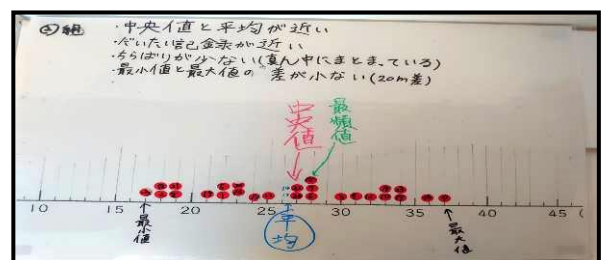 ④組
・中央値と平均が近い
・だいたい記録が近い
・ちらばりが少ない(真ん中にまとまっている)
・最小値と最大値の差が小さい(20m差)
中央値
最頻値
10 15 20 25 30 35 40 45
↑最小値
↑平均
↑最大値